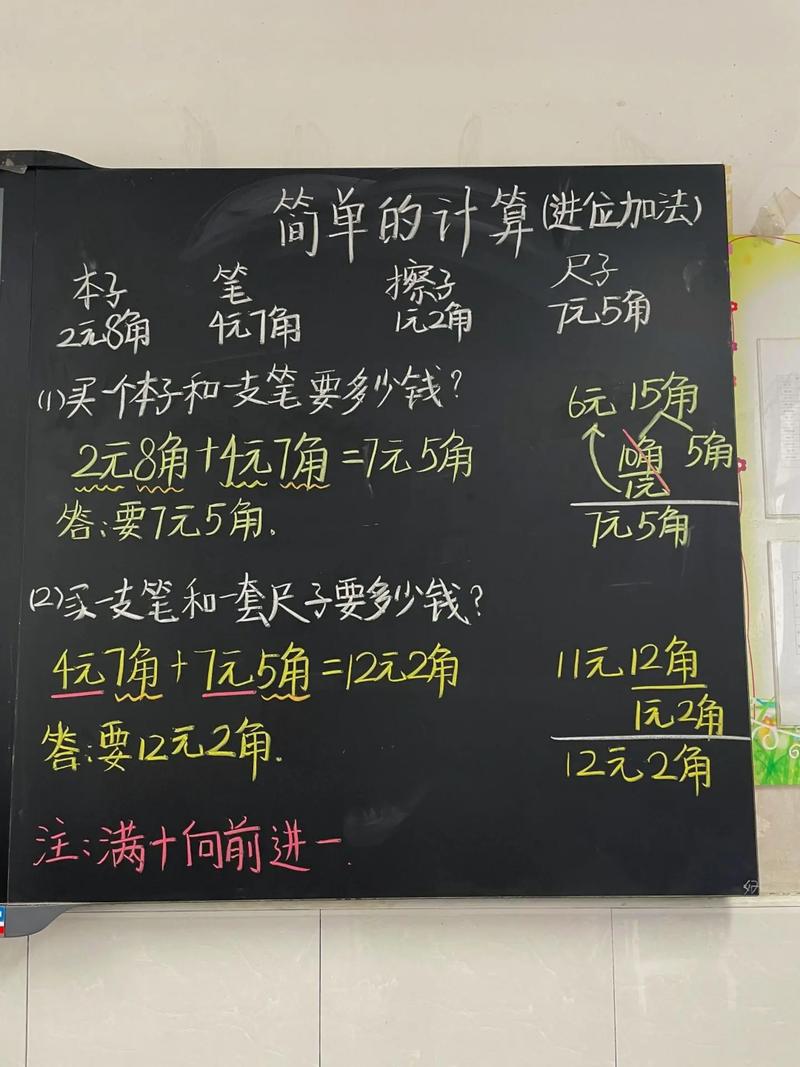 简单的计算(进位加法)
本子 笔 擦子 尺子
2元8角 4元7角 1元2角 7元5角
(1)买一个本子和一支笔要多少钱?
2元8角+4元7角=7元5角
答:要7元5角.
6元 15角
10角 5角
1元
7元5角
(2)买一支笔和一套尺子要多少钱?
4元7角+7元5角=12元2角
答:要12元2角.
11元12角
1元2角
12元2角
注:满十向前进一.